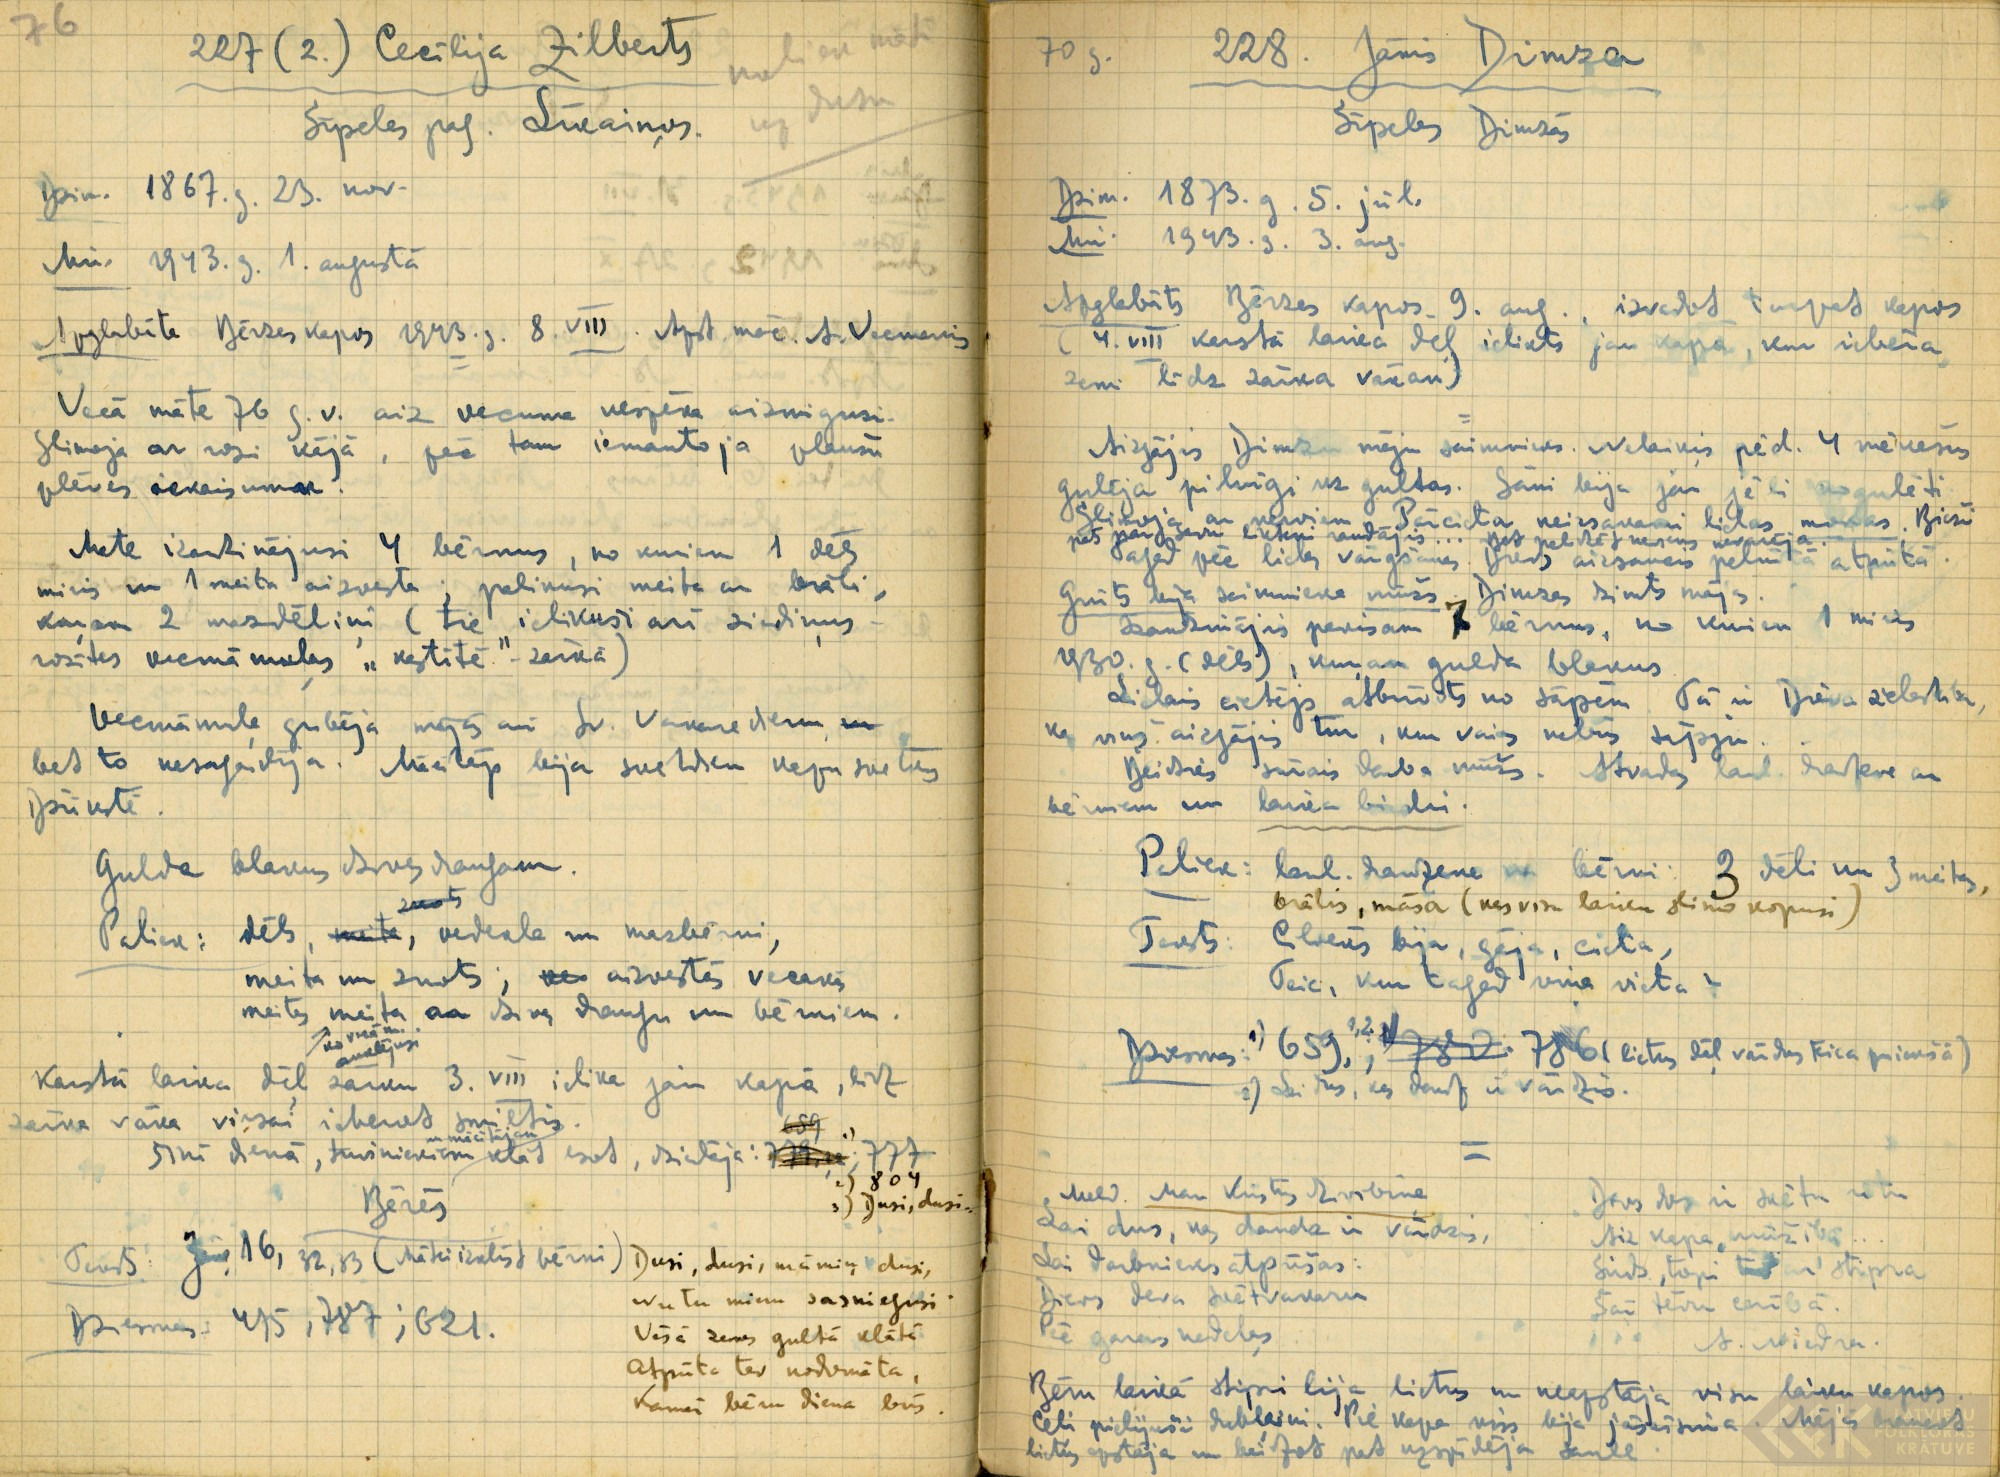 76
227 (2.) Cecīlija Zilberts
Šīpeles pag. Lūkaiņos.
Dzim. 1867. g. 23. nov.
Mir. 1943. g. 1. augustā
Apglabāta Bērzes kapos 1943. g. 8. VIII. Apst. māc. A. Veemanis
Vecā māte 76 g. v. aiz vecuma nespēka aizmigusi.
Slimoja ar rozi kājā, pēc tam iemantoja plaušu
plēves iekaisumu.
Māte izaudzinājusi 4 bērnus, no kuriem 1 dēls
miris un 1 meita aizvesta; palikusi meita ar brāli,
kuŗam 2 mazdēliņi (tie ielikuši arī ziediņus -
rozītes vecmāmuļas "kastītē" - zārkā)
Vecmāmuļa gribēja mājās arī Sv. Vakarēdienu,
bet to nesagaidīja. Mācītājs bija svētdien kapu svētkos
Džūkstē.
Gulda blakus dzīves draugam.
Paliek: dēls, znots, vedekla un mazbērni,
meita un znots; aizvestās vecākās
meitas meita ar dzīves draugu un bērniem.
no viņām auklējusi
Karstā laika dēļ zārku 3. VIII ielika jau kapā, līdz
zārka vāka virsai ieberot smiltis.
Šinī dienā, tuviniekiem un mācītājam klāt esot, dziedāja: 659 1) 777
2) 804
3) Dusi, dusi..
Bērēs
Teksts: Jes. 16, 32, 33 (Mātei izklīst bērni)
Dziesmas: 415, 787; 621.
Dusi, dusi, māmiņ, dusi,
Vietu mieru sasniegusi.
Vēsā zemes gultā klātā
Atpūta tev nodomāta,
Kamēr bēru diena būs.
70 g. 228. Jānis Dimza
Šīpeles Dimzās
Dzim. 1873. g. 5. jūl.
Mir. 1943. g. 3. aug.
Apglabāts Bērzes kapos 9. aug., izvadot turpat kapos
(4. VIII karstā laika dēļ ielikts jau kapā, kur iebēra
zemi līdz zārka vākam)
Aizgājis Dimzu māju saimnieks. Nelaiķis pēd. 4 mēnešus
gulēja pilnīgi uz gultas. Sāni bija jau jēli nogulēti.
Slimoja ar nerviem. Pārcieta neizsakāmi lielas mokas. Bieži
pats par savu likteni raudājis... Bet palīdzēt neviens nevarēja.
Tagad pēc lielas vārgšanas Dievs aizsaucis pelnītā atpūtā.
Grūts bija saimnieka mūžs. Dimzas dzimts mājas.
Izaudzinājis pavisam 7 bērnus, no kuriem 1 miris
1930. g. (dēls), kuŗam gulda blakus
Lielais cietējs atbrīvots no sāpēm. Tā ir Dieva žēlastība,
ka viņš aizgājis tur, kur vairs nebūs sāpju.
Beidzies sūrais darba mūžs. Atvadas laul. draudzene ar
bērniem un laika biedri.
Paliek: laul. draudzene un bērni: 3 dēli un 3 meitas,
brālis, māsa (kas visu laiku slimo kopusi)
Teksts: Cilvēks bija, gāja, cieta,
Teic, kur tagad viņa vieta?
Dziesmas: 1) 659, 1,2; 782. 786 (lietus dēļ vārdus teica priekšā)
2) Lai dus, kas daudz ir vārdzis.
Meld. Man Kristus dzīvībiņa
Lai dus, kas daudz ir vārdzis,
Lai darbnieks atpūšas:
Dievs deva svētvakaru
Pēc garas nedēļas
Dvēs dus ir svētu rotu
Aiz kapa mūžībā...
Sirds, topi stipra
Šai tēvu cerībā.
A. Niedra.
Bēru laikā stipri lija lietus un neapstāja visu laiku kapos.
Ceļi pielijuši dubļaini. Pie kapa viss bija jāsaīsina. Mājās braucot
lietus apstāja un beidzot pat uzspīdēja saule.
LATVIEŠU
FOLKLORAS
KRĀTUVE